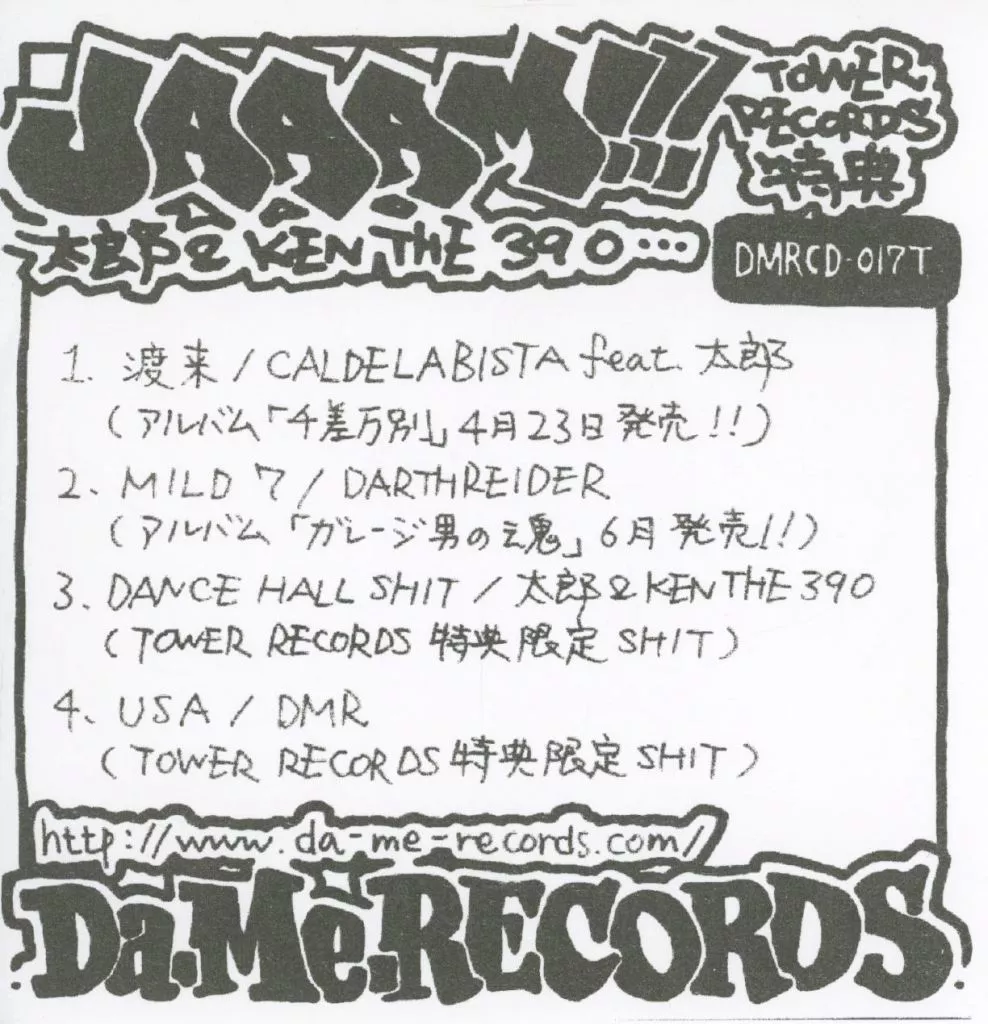 JAAAM!!!
TOWER
RECORDS
特典
太郎& KEN THE 390…
DMRCD-017T
1. 渡来 / CALDELABISTA feat. 太郎
(アルバム「千差万別」4月23日発売!!)
2. MILD 7 / DARTHREIDER
(アルバム「ガレージ男の魂」6月発売!!)
3. DANCE HALL SHIT / 太郎&KEN THE 390
(TOWER RECORDS 特典限定 SHIT)
4. USA / DMR
(TOWER RECORDS 特典限定 SHIT)
http://www.da-me-records.com/
Da.Me.RECORDS.